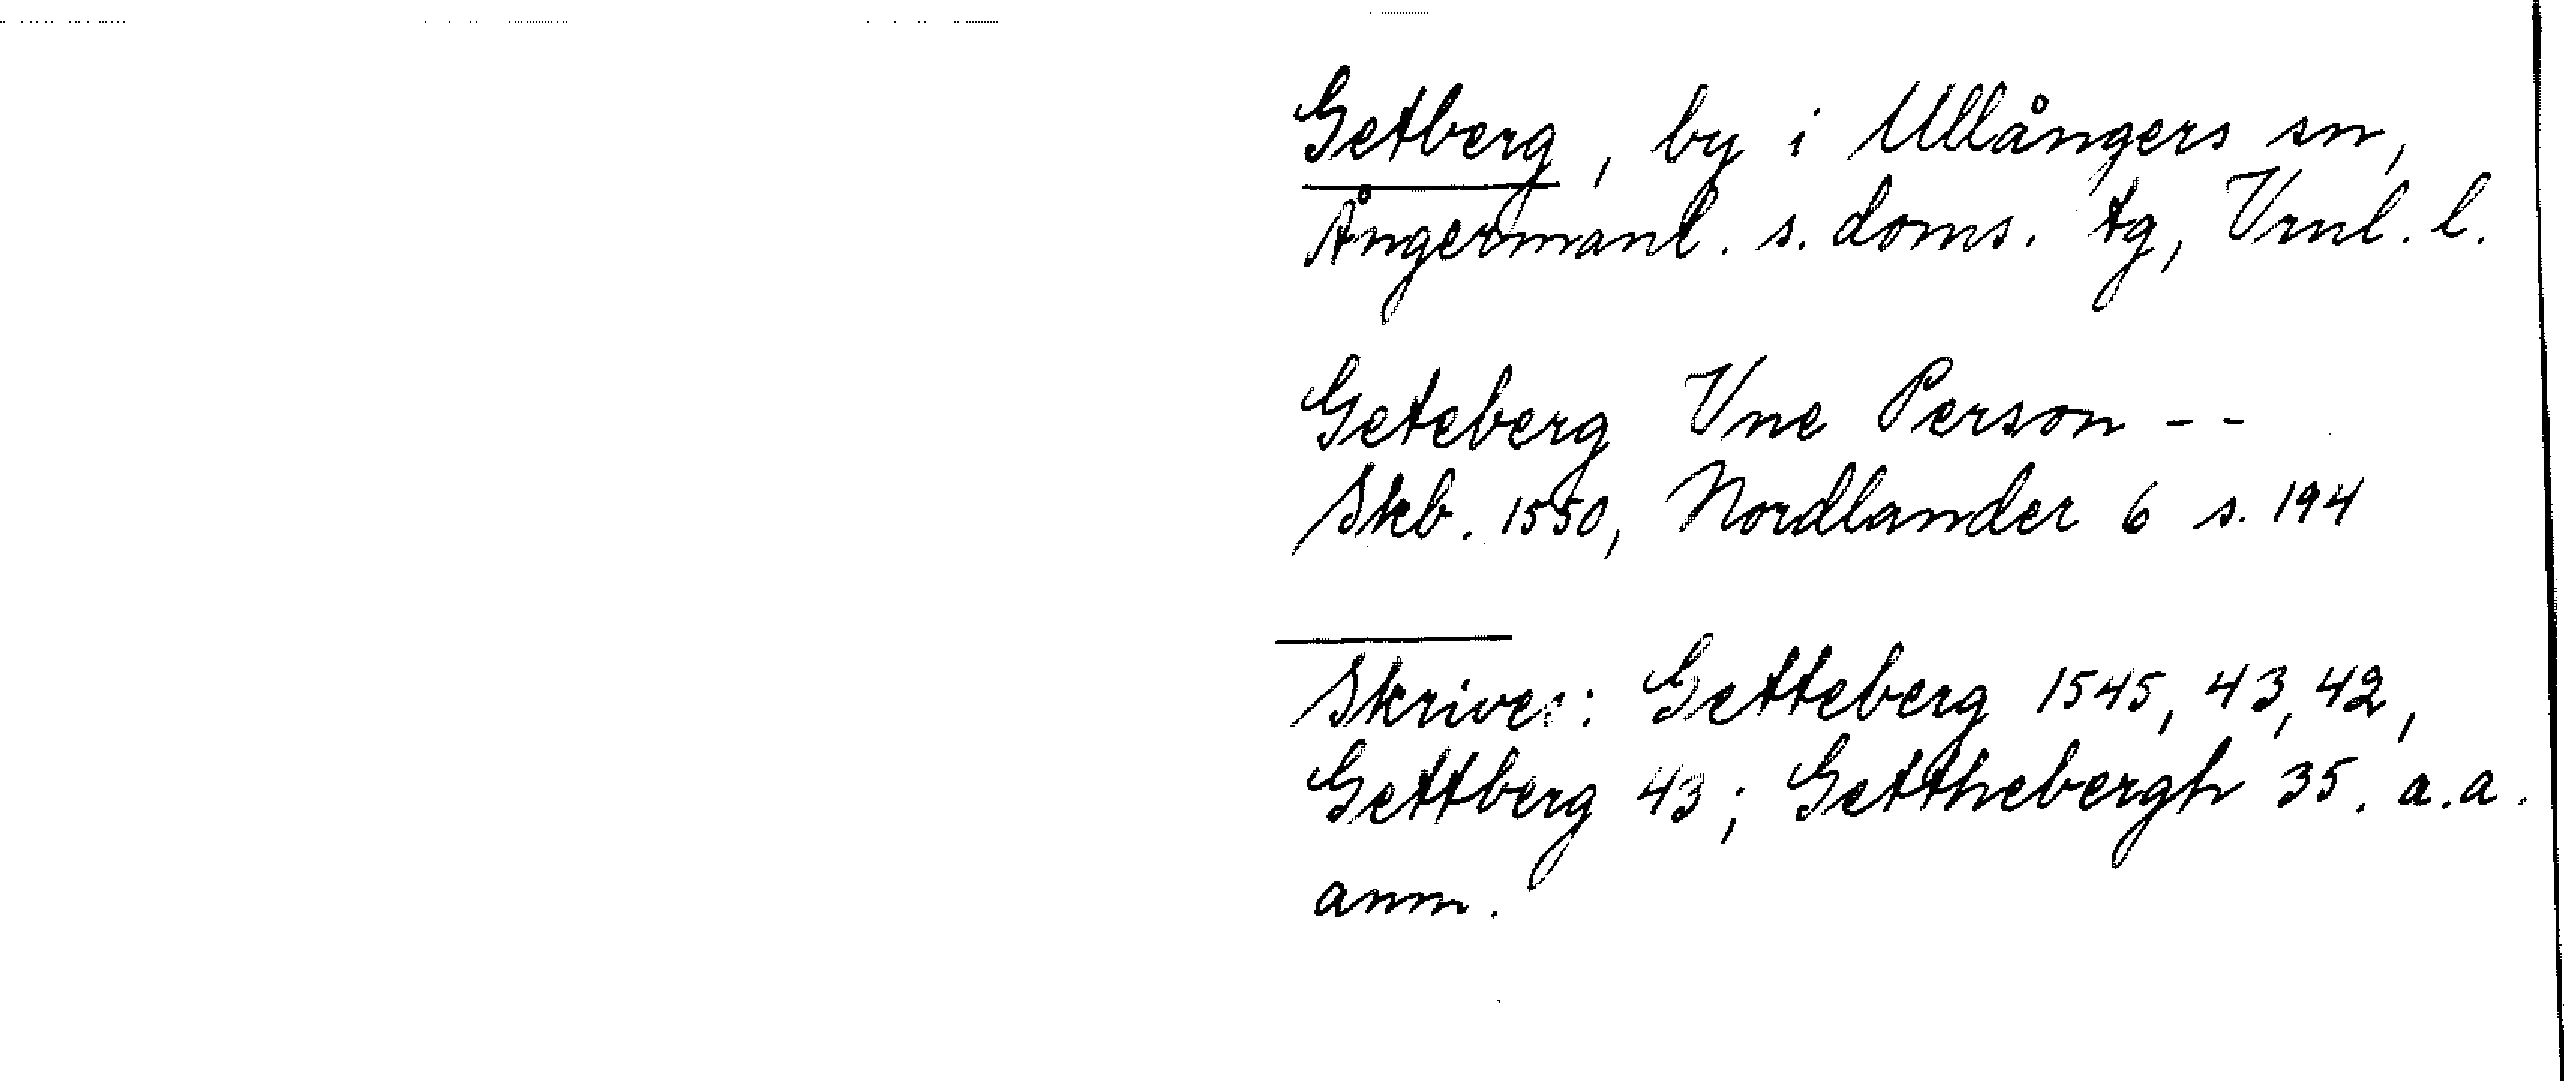 Getberg, by i Ullångers sn,
Ångermanl. s. doms. tg, Vrnl. l.
Geteberg Vne Person - -
Skb. 1550, Nordlander 6 s. 194
Skrives: Getteberg 1545, 43, 42,
Gettberg 43; Getthebergh 35. a.a.
anm.